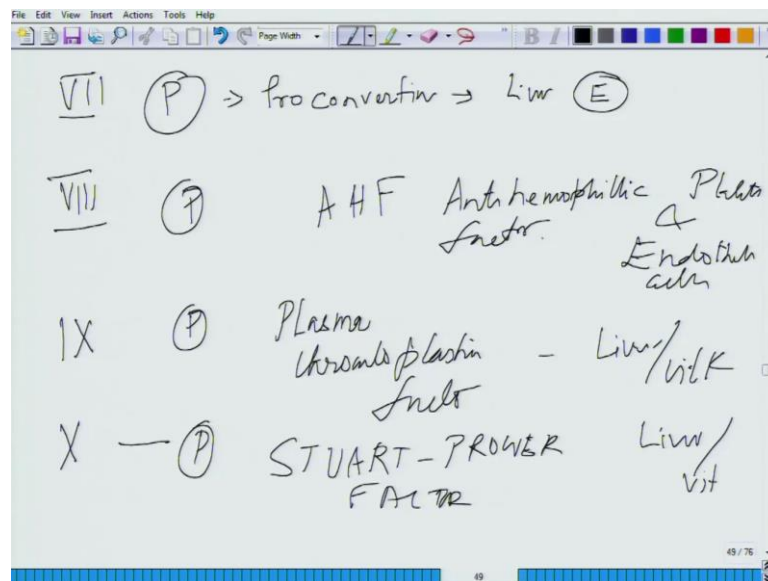 File Edit View Insert Actions Tools Help
Page Width
VII P → Proconvertin → Liver E
VIII P AHF Antihemophillic factor. Platelets & Endothelial cells
IX P Plasma thromboplastin factor - Liver/Vit K
X — P STUART-PROWER FACTOR Liver/Vit
49 / 76
49